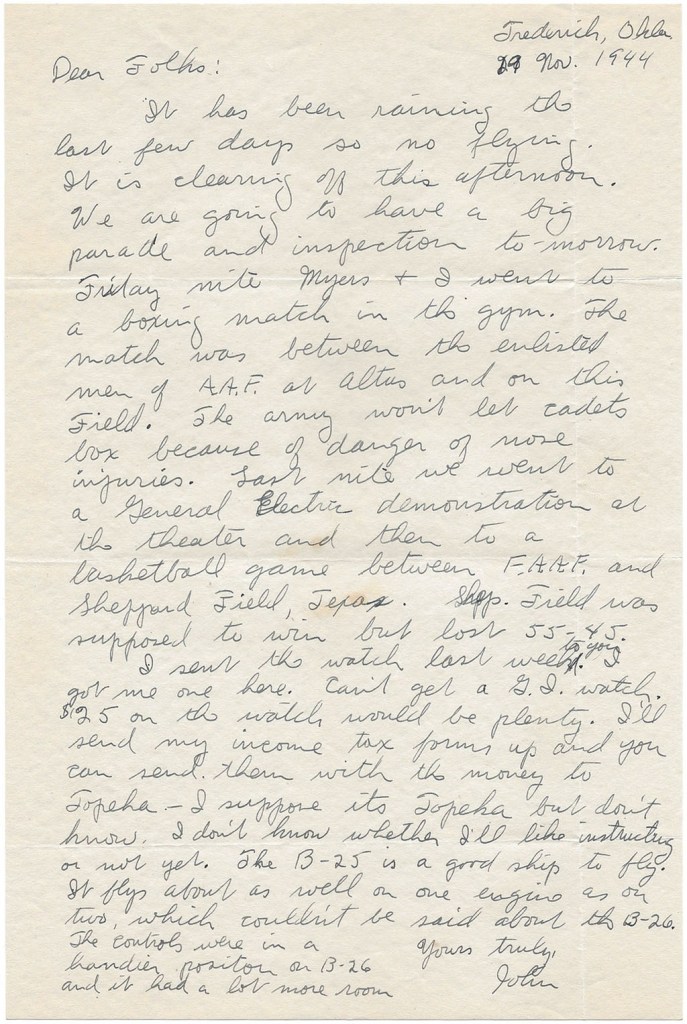 Frederick, Okla
19 Nov. 1944
Dear Folks:
It has been raining the
last few days so no flying.
It is clearing off this afternoon.
We are going to have a big
parade and inspection to-morrow.
Friday nite Myers + I went to
a boxing match in the gym. The
match was between the enlisted
men of A.A.F. at Altus and on this
Field. The army won't let cadets
box because of danger of nose
injuries. Last nite we went to
a General Electric demonstration at
the theater and then to a
basketball game between F.A.A.F. and
Sheppard Field, Texas. Shep. Field was
supposed to win but lost 55-45.
I sent the watch last week to you. I
got me one here. Can't get a G.I. watch.
$25 on the watch would be plenty. I'll
send my income tax forms up and you
can send them with the money to
Topeka - I suppose its Topeka but don't
know. I don't know whether I'll like instructing
or not yet. The B-25 is a good ship to fly.
It flys about as well on one engine as on
two, which couldn't be said about the B-26.
The controls were in a
handier position on B-26
and it had a lot more room
Yours truly,
John